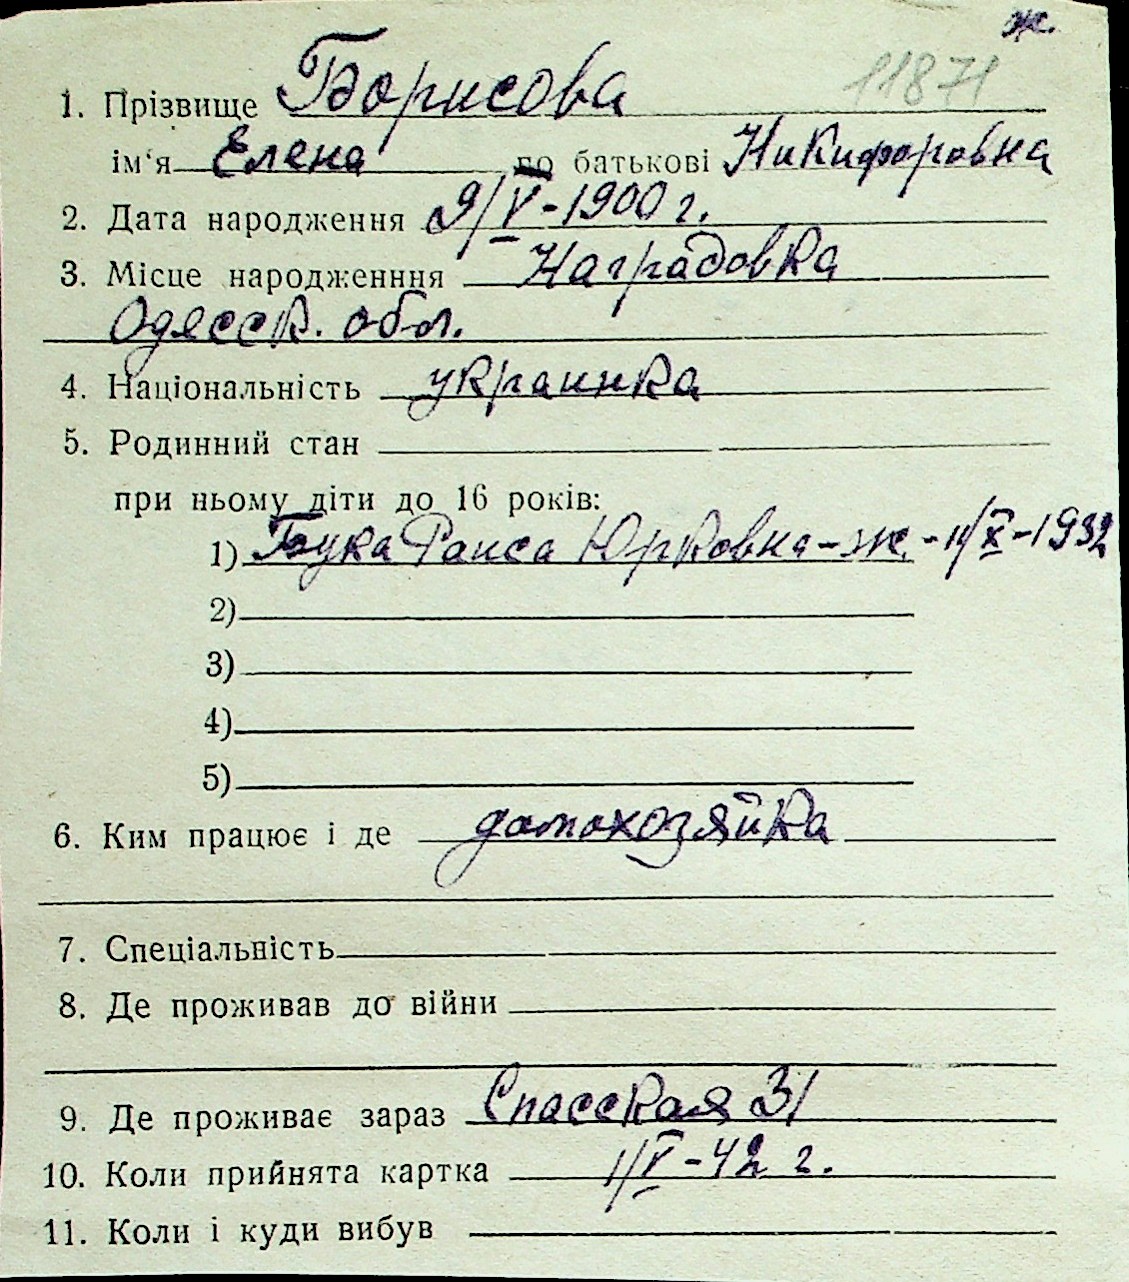 ж.
11871
1. Прізвище Борисова
ім'я Елена по батькові Никифоровна
2. Дата народження 9/V-1900 г.
3. Місце народженння Наградовка
Одесск. обл.
4. Національність украинка
5. Родинний стан
при ньому діти до 16 років:
1) Бука Раиса Юрковна-ж.-11/X-1932
2)
3)
4)
5)
6. Ким працює і де домохозяйка
7. Спеціальність
8. Де проживав до війни
9. Де проживає зараз Спасская 31
10. Коли прийнята картка 1/V-42 г.
11. Коли і куди вибув